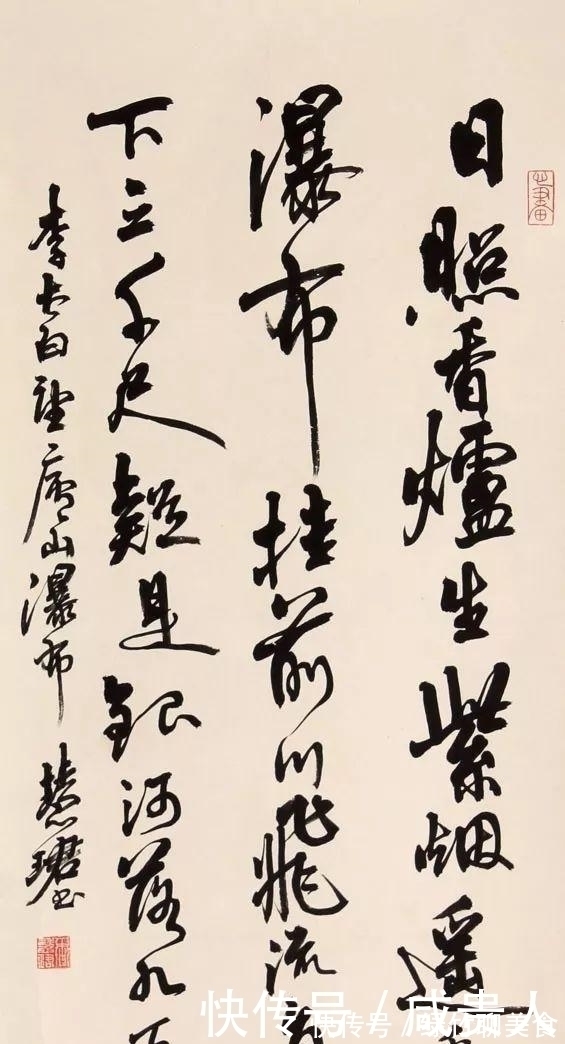 日照香爐生紫烟遥
瀑布挂前川飛流
下三千尺疑是銀河落九
李太白望廬山瀑布 慧珺书
快传号 / 成贵人
快传号/聊美食